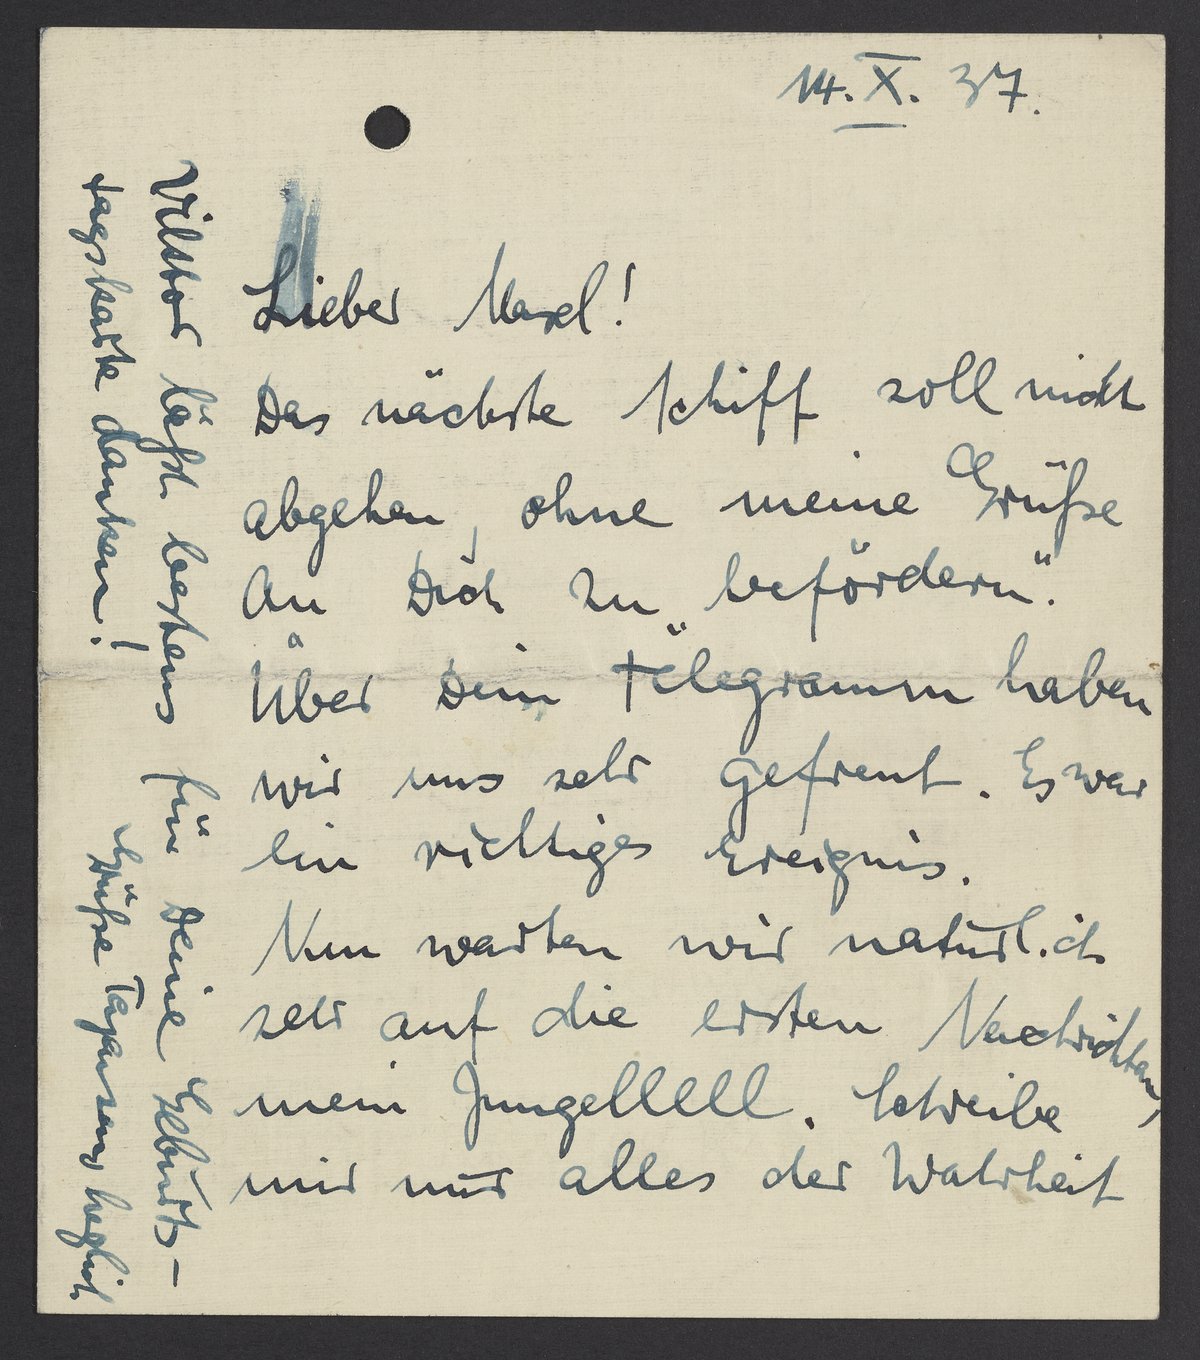 14. X. 37.
Lieber Maxel!
Das nächste Schiff soll nicht
abgehen, ohne meine Grüße
an Dich zu „befördern“.
Über Dein Telegramm haben
wir uns sehr gefreut. Es war
ein richtiges Ereignis.
Nun warten wir natürlich
sehr auf die ersten Nachrichten,
mein Jungellell. Schreibe
mir nur alles der Wahrheit
Viktor läßt bestens für Deine Geburts-
tagskarte danken!
Grüße herzlich